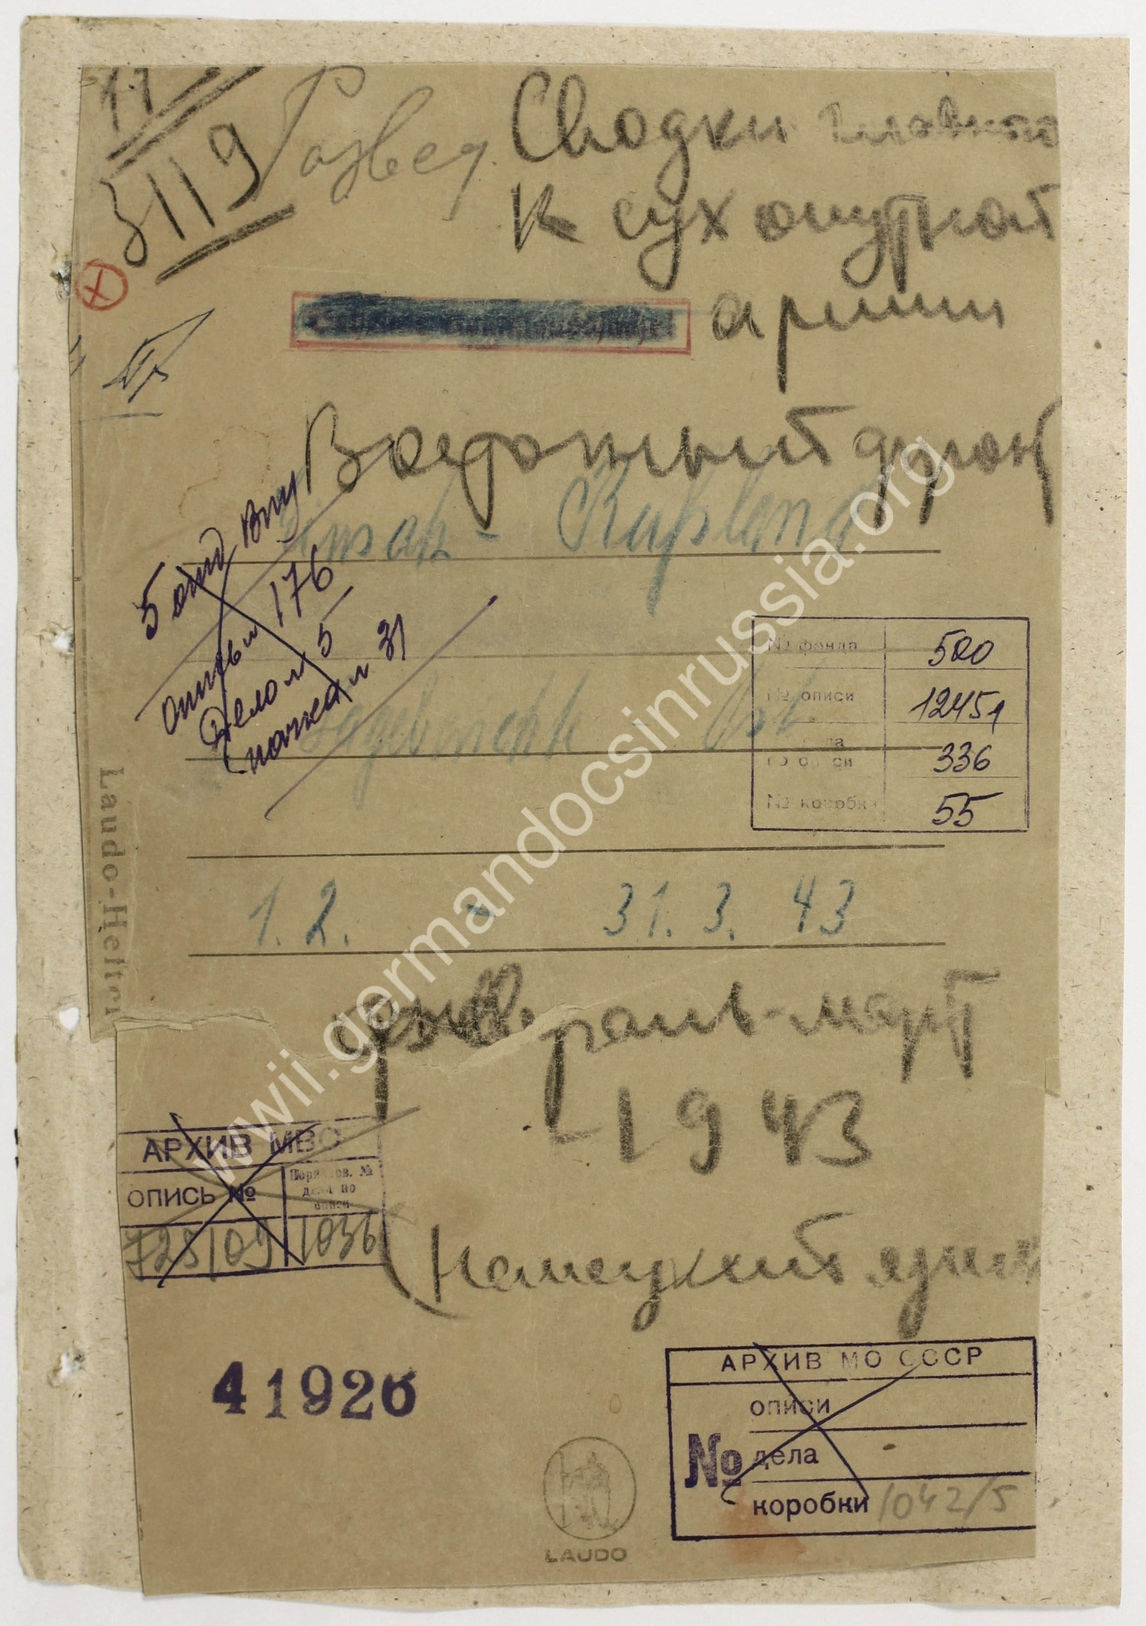 11
3119
Развед. Сводки главного
к сухопутной
армии
Восточный фронт
- Rußland
5 отд ВНУ
опись № 176
Дело № 5
пачка № 31
№ фонда 500
№ описи 12451
336
№ коробки 55
Tagebuch Ost
Laudo-Hefter
1.2. - 31.3.43
февраль-март
-1943
АРХИВ МВС
ОПИСЬ №
Порядков. № дела по описи
725109 1036
(Немецкий язык
41926
АРХИВ МО СССР
описи
№ дела
коробки 1042/5
LAUDO
www.germandocsinrussia.org